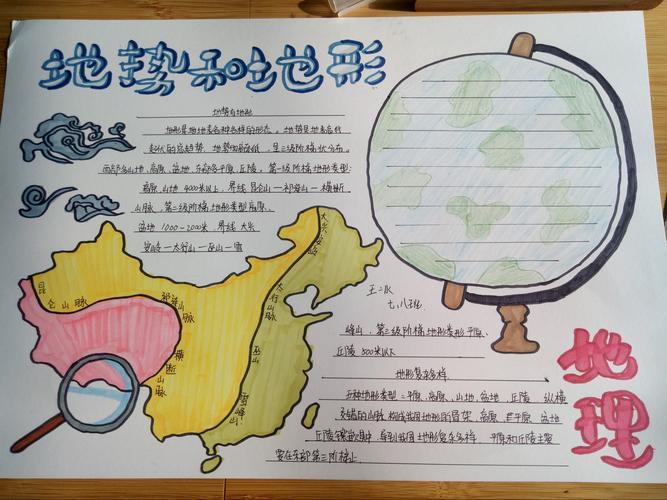 地势和地形
地势与地形
地形是地表各种各样的形态。地势是地表高低
起伏的总趋势，地势西高东低，呈三级阶梯状分布。
西部多山地、高原、盆地，东部多平原、丘陵。第一级阶梯地形类型：
高原、山地 4000米以上，界线 昆仑山—祁连山—横断
山脉。第二级阶梯地形类型高原、
盆地 1000-2000米 界线 大兴
安岭—太行山—巫山—雪
峰山、第三级阶梯地形类形平原、
丘陵 500米以下
地形复杂多样
五种地形类型：平原、高原、山地、盆地、丘陵 纵横
交错的山脉，构成我国地形的骨架，高原、平原、盆地
丘陵镶嵌其中，导到我国地形复杂多样，平原和丘陵主要
要在东部第三阶梯上.
七、八班
昆仑山脉
祁连山脉
横断山脉
大兴安岭
太行山脉
巫山
雪峰山
地理